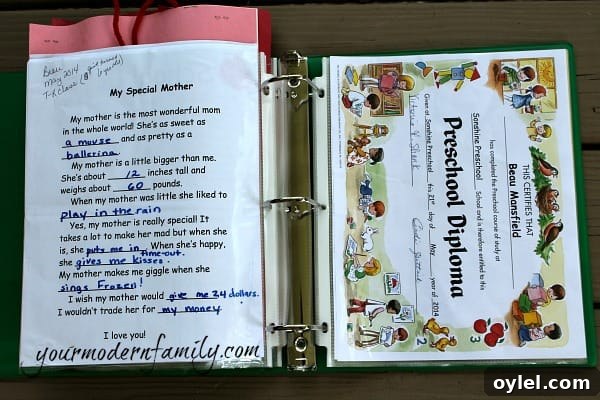 Beau
May 2014
T-K Class
My Special Mother
My mother is the most wonderful mom
in the whole world! She's as sweet as
a muvse and as pretty as a
ballerina.
My mother is a little bigger than me.
She's about 12 inches tall and
weighs about 60 pounds.
When my mother was little she liked to
play in the rain
Yes, my mother is really special! It
takes a lot to make her mad but when she
is, she puts me in time-out. When she's happy,
she gives me kisses.
My mother makes me giggle when she
sings Frozen!
I wish my mother would give me 24 dollars.
I wouldn't trade her for my money
I love you!
yourmodernfamily.com
THIS CERTIFIES THAT
Beau Mansfield
has completed the Preschool course of study at
Sonshine Preschool School and is therefore entitled to this
Preschool Diploma
Given at Sonshine Preschool this 21st day of May year of 2014
2
3
oylel.com